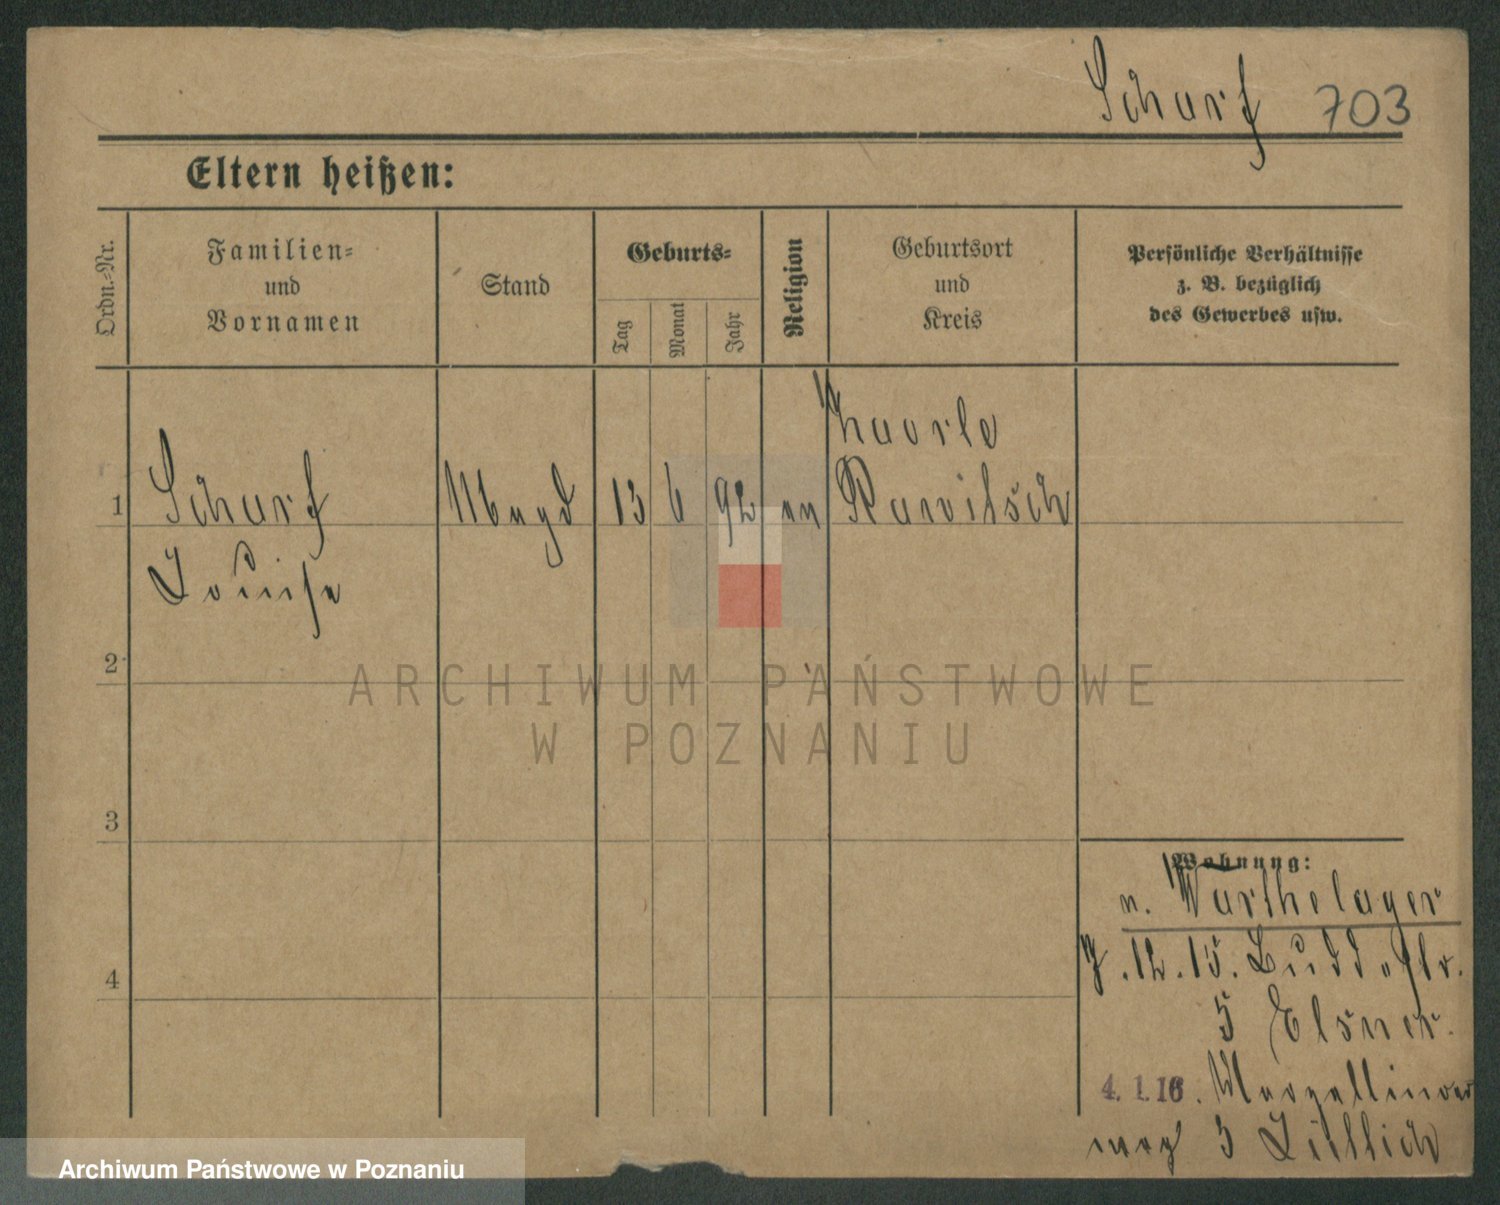 Scharf 703
Eltern heißen:
Ordn.-Nr.
Familien-
und
Vornamen
Stand
Geburts-
Tag
Monat
Jahr
Religion
Geburtsort
und
Kreis
Persönliche Verhältnisse
z. B. bezüglich
des Gewerbes usw.
1
Scharf
Louise
Magd
13
6
92
Rawitsch
2
3
4
Wohnung:
n. Warthelager
12. 15.
5 Elsner.
4. 1. 16.
weg 5
ARCHIWUM PAŃSTWOWE
W POZNANIU
Archiwum Państwowe w Poznaniu